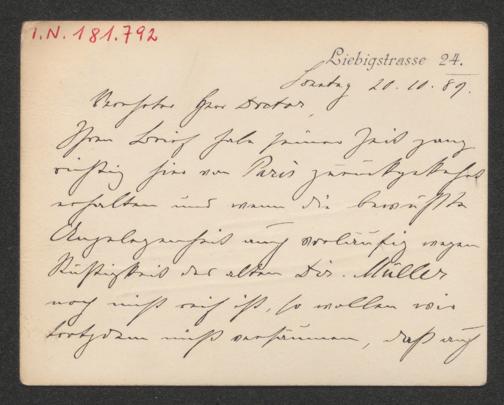 I.N. 181.792
Liebigstrasse 24.
Sonntag 20.10.89.
Verehrter Herr Doctor,
Ihren Brief habe seiner Zeit ganz
richtig hier von Paris zurückgekehrt
erhalten und wenn die bewußte
Angelegenheit auch vorläufig wegen
Rüstigkeit des alten Dir. Müller
noch nicht reif ist, so wollen wir
trotzdem nicht versäumen, daß auch